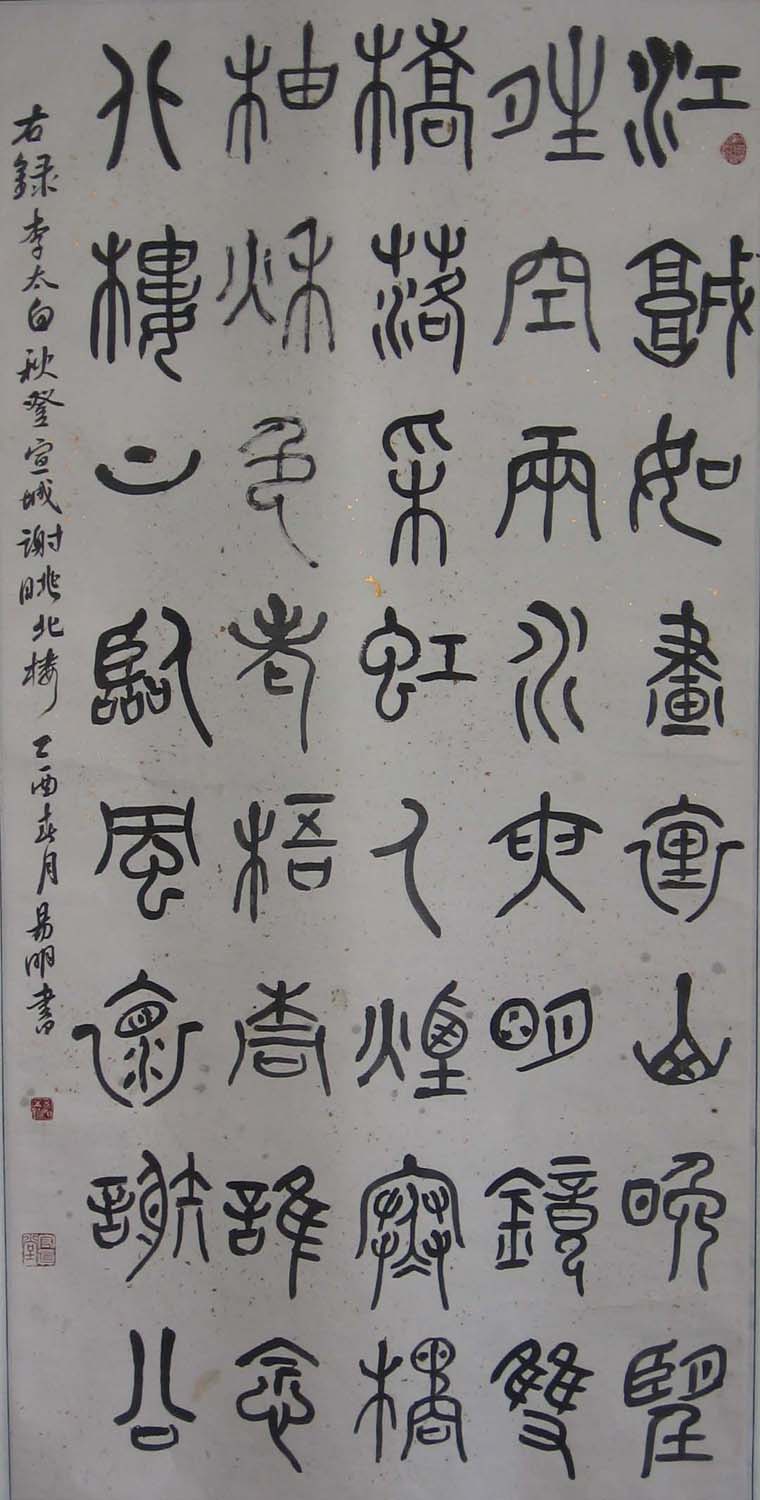 江城如畫裏山晚望
晴空兩水夾明鏡雙
橋落采虹人煙寒橘
柚秋色老梧桐誰念
北樓上臨風懷謝公
右録李太白秋登宣城謝眺北楼 乙酉春月易明書